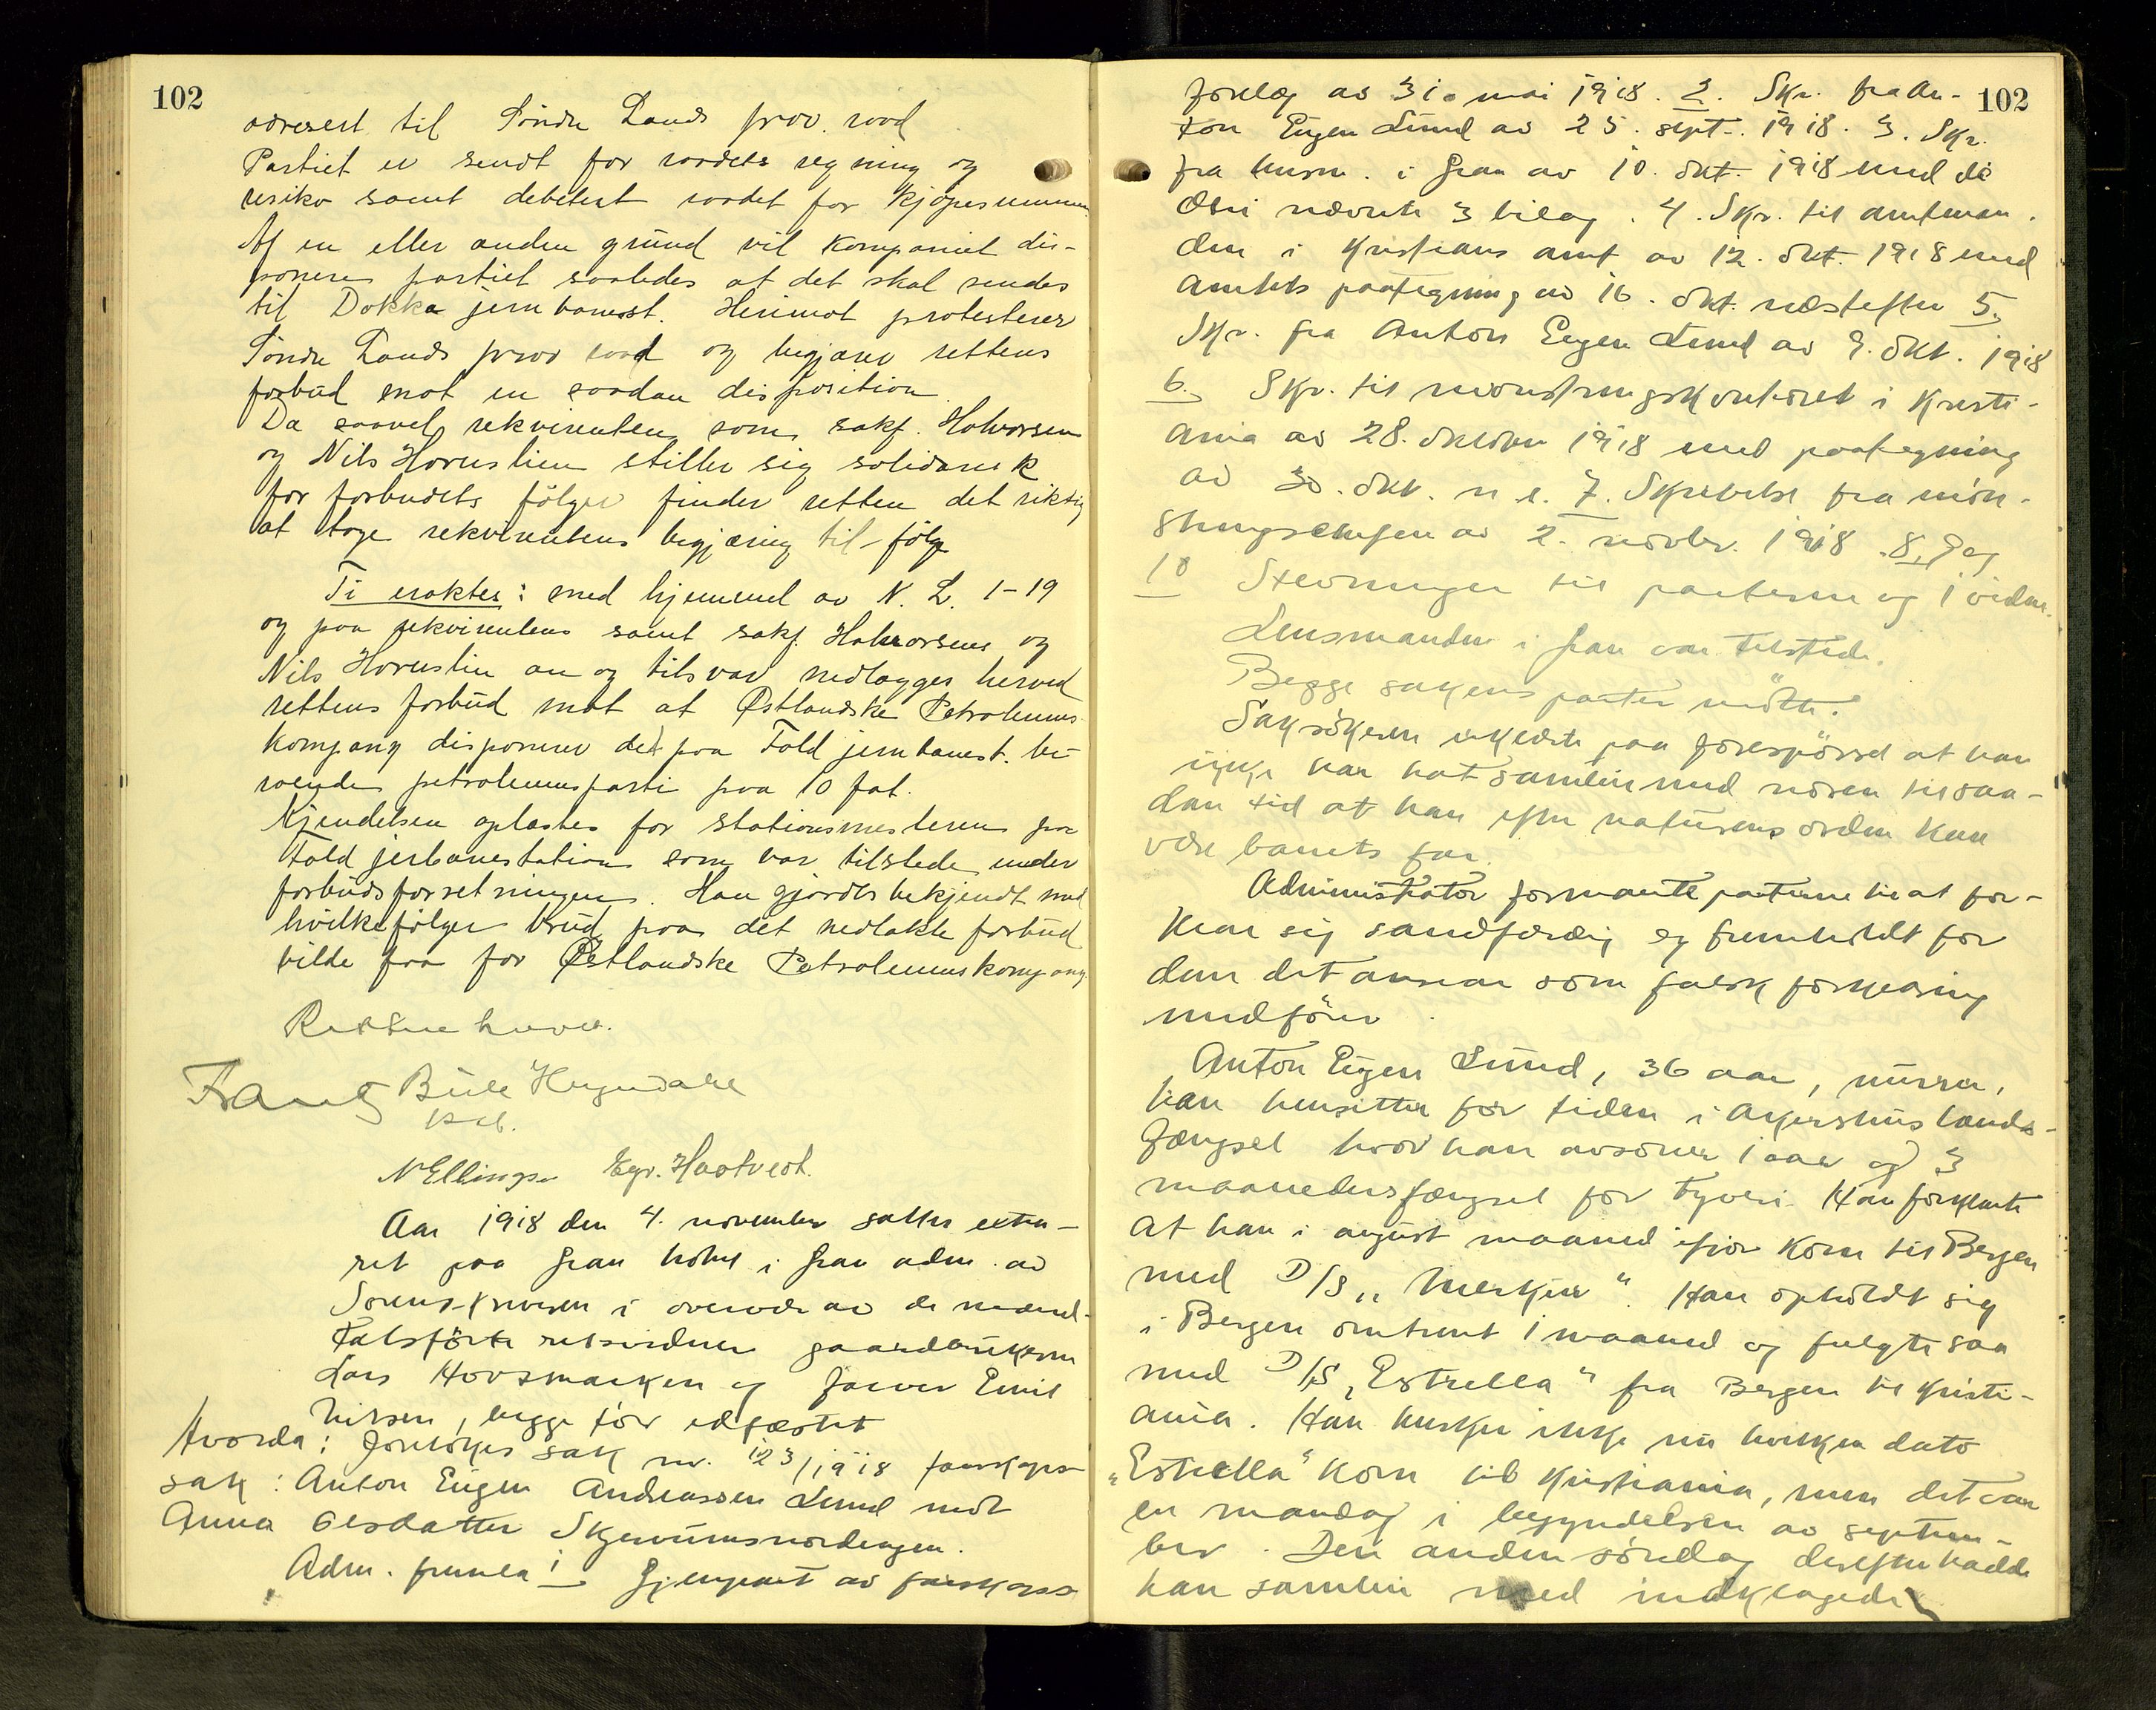 102
adresert til Söndre Lands prov. raad
Partiet er sendt for raadets regning og
risiko samt debetert raadet for kjöpesummen
Af en eller anden grund vil kompaniet dis-
ponere partiet saaledes at det skal sendes
til Dokka jernbanest. Herimot protesterer
Söndre Lands prov raad og begjærer rettens
forbud mot en saadan disposition
Da saavel rekvirenten som sakf. Halvorsen
og Nils Hovuslien stiller sig solidarisk
for forbudets fölger finder retten det riktig
at tage rekvirentens begjæring til fölge
Ti eraktes: med hjemmel av N. L. 1-19
og paa rekvirentens samt sakf. Halvorsens og
Nils Hovuslien an og tilsvar nedlægges herved
rettens forbud mot at Østlandske Petroleums
kompany disponerer det paa Fald jernbanest. be
roende petroleumsparti paa 10 fat.
Kjendelsen oplæstes for stationsmesteren paa
Fald jerbanestation som var tilstede under
forbudsforretningen. Han gjordes bekjendt med
hvilke fölger brud paa det nedlakte forbud
vilde faa for Østlandske Petroleumskompany
Retten hævet.
Frantz Büll Hegerdahl
N Ellingsen Hartvedt.
Aar 1918 den 4. november sattes extra-
ret paa Gran hotel i Gran adm. av
Sorenskriveren i overvær av de mand-
talsförte retsvidner gaardbruker
Lars Hovsmarken og Garver Emil
Nilsen, begge för edfæstet
Hvorda: Foretokes sak nr. 123/1918 farskaps-
sak: Anton Eugen Andreassen Lund mot
Anna Olsdatter Skjervumsnordengen.
Adm. fremla 1 Gjenpart av farskaps
102
forelæg av 31. mai 1918. 2. Skr. fra An-
ton Eugen Lund av 25. sept. 1918. 3. Skr.
fra lensm. i Gran av 10. okt. 1918 med de
deri nævnte 3 bilag. 4. Skr. til amtman-
den i Kristians amt av 12. okt. 1918 med
amtets paategning av 16. okt. næstefter 5.
Skr. fra Anton Eugen Lund av 9. okt. 1918
6. Skr. til mönstringskontoret i Kristi-
ania av 28. oktober 1918 med paategning
av 30. okt. n. e. 7. Skrivelse fra mön-
stringschefen av 2. novbr. 1918. 8, 9 og
10 Stevninger til parterne og 1 vidne.
Lensmanden i Gran var tilstede.
Begge sakens parter mötte.
Saksökeren erklærte paa forespörsel at han
ikke har hat samleie med nogen til saa-
dan tid at han efter naturens orden kan
være barnets far.
Administrator formante parterne til at for-
klare sig sandfærdig og fremholdt for
dem det ansvar som falsk forklaring
medförer.
Anton Eugen Lund, 36 aar, murer,
han hensitter for tiden i Akershus lands-
fængsel hvor han avsoner 1 aar og 3
maaneders fængsel for tyveri. Han forklarte
at han i august maaned ifjor kom til Bergen
med D/S „Merkur". Han opholdt sig
i Bergen omtrent 1 maaned og fulgte saa
med D/S „Estrella" fra Bergen til Kristi-
ania. Han husker ikke nu hvilken dato
„Estrella" kom til Kristiania, men det var
en mandag i begyndelsen av septem-
ber. Den anden söndag derefter hadde
han samleie med indklagede